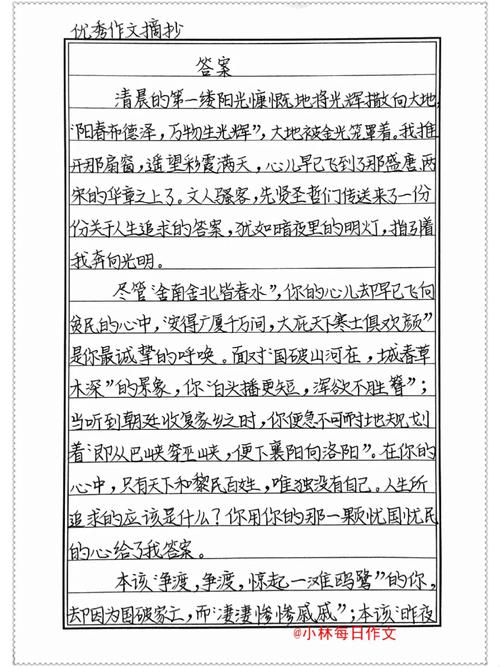 优秀作文摘抄
答案
清晨的第一缕阳光慷慨地将光辉撒向大地,
“阳春布德泽,万物生光辉”,大地被金光笼罩着。我推
开那扇窗,遥望彩霞满天,心儿早已飞到了那盛唐两
宋的华章之上了。文人骚客,先贤圣哲们传送来了一份
份关于人生追求的答案,犹如暗夜里的明灯,指引着
我奔向光明。
尽管“舍南舍北皆春水”,你的心儿却早已飞向
贫民的心中,“安得广厦千万间,大庇天下寒士俱欢颜”
是你最诚挚的呼唤。面对“国破山河在,城春草
木深”的景象,你“白头搔更短,浑欲不胜簪”;
当听到朝廷收复家乡之时,你便急不可耐地规划
着“即从巴峡穿巫峡,便下襄阳向洛阳”。在你的
心中,只有天下和黎民百姓,唯独没有自己。人生所
追求的应该是什么?你用你的那一颗忧国忧民
的心给了我答案。
本该“争渡,争渡,惊起一滩鸥鹭”的你,
却因为国破家亡,而“凄凄惨惨戚戚”;本该“昨夜
@小林每日作文